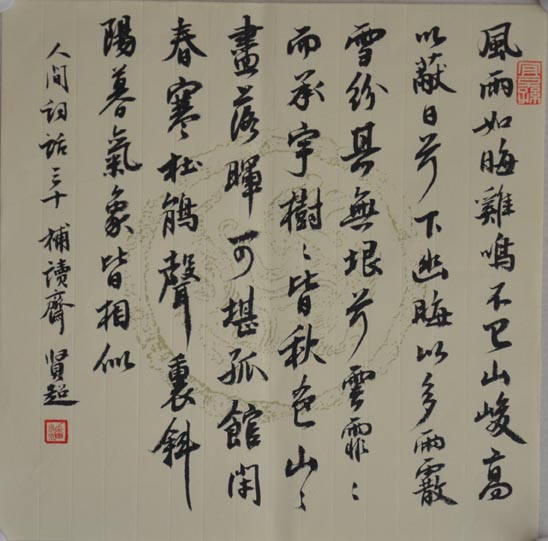 風雨如晦雞鳴不已山峻高
以蔽日兮下幽晦以多雨霰
雪紛其無垠兮雲霏〻
而承宇樹〻皆秋色山〻
盡落暉可堪孤館閉
春寒杜鵑聲裏斜
陽暮氣象皆相似
人间词话三十 補讀齋 贤超